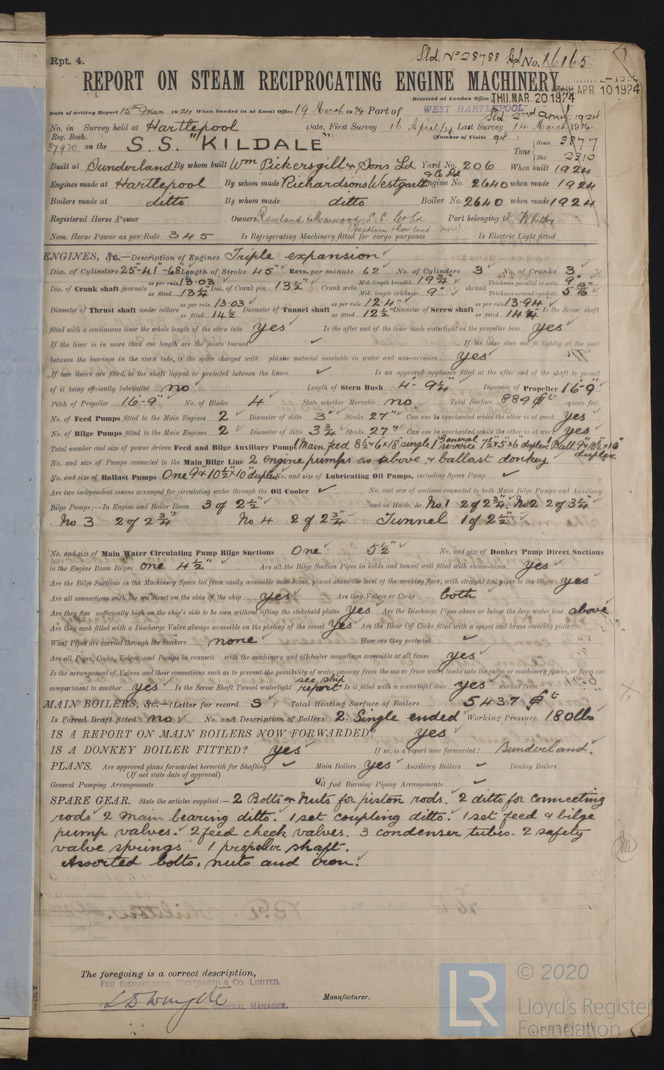 Rpt. 4.
Sld No 28788 Hd No. 16165
REPORT ON STEAM RECIPROCATING ENGINE MACHINERY.
Received at London Office THU. MAR. 20 1924 THU. APR. 10 1924
Date of writing Report 15th Mar 1924 When handed in at Local Office 19 March 1924 Port of WEST HARTLEPOOL
Sld 2nd April 1924
No. in Survey held at Hartlepool Date, First Survey 16 April/23 Last Survey 14 March 1924
Reg. Book. (Number of Visits 94)
37920 on the S.S. "KILDALE" Tons Gross 3877 Net 2310
Built at Sunderland By whom built Wm Pickersgill & Sons Ld Yard No. 206 When built 1924
Engines made at Hartlepool By whom made Richardsons Westgarth & Co Ld Engine No. 2640 when made 1924
Boilers made at ditto By whom made ditto Boiler No. 2640 when made 1924
Registered Horse Power Owners Rowland & Marwood S.S. Co Ld Port belonging to Whitby
Nom. Horse Power as per Rule 345 Is Refrigerating Machinery fitted for cargo purposes Is Electric Light fitted
ENGINES, &c.—Description of Engines Triple expansion
Dia. of Cylinders 25-41-68 Length of Stroke 45" Revs. per minute 62 No. of Cylinders 3 No. of Cranks 3
Dia. of Crank shaft journals as per rule 13.03 as fitted 13¼" Dia. of Crank pin 13½" Crank webs Mid. length breadth 19¾" Mid. length thickness 9" shrunk Thickness parallel to axis Thickness around eyehole
Diameter of Thrust shaft under collars as per rule 13.03 as fitted 14½ Diameter of Tunnel shaft as per rule 12.4" as fitted 12½" Diameter of Screw shaft as per rule 13.94 as fitted 14¼ Is the Screw shaft
fitted with a continuous liner the whole length of the stern tube Yes Is the after end of the liner made watertight in the propeller boss Yes
If the liner is in more than one length are the joints burned If the liner does not fit tightly at the part
between the bearings in the stern tube, is the space charged with plastic material insoluble in water and non-corrosive Yes
If two liners are fitted, is the shaft lapped or protected between the liners Is an approved appliance fitted at the after end of the shaft to permit
of it being efficiently lubricated no Length of Stern Bush 4'-9¼" Diameter of Propeller 16-9"
Pitch of Propeller 16-9" No. of Blades 4 State whether Moveable no Total Surface 889 square feet.
No. of Feed Pumps fitted to the Main Engines 2 Diameter of ditto 3" Stroke 27" Can one be overhauled while the other is at work Yes
No. of Bilge Pumps fitted to the Main Engines 2 Diameter of ditto 3¾ Stroke 27" Can one be overhauled while the other is at work Yes
Total number and size of power driven Feed and Auxiliary Pumps 1 Main feed 8½x6x18 single 1 General service 7½x5x6 duplex 1 Ball. 9x10½x10" duplex
No. and size of Pumps connected to the Main Bilge Line 2 engine pumps as above & ballast donkey
No. and size of Ballast Pumps One 9x10½x10" duplex No. and size of Lubricating Oil Pumps, including Spare Pump
Are two independent means arranged for circulating water through the Oil Cooler No. and size of suctions connected to both Main Bilge Pumps and Auxiliary
Bilge Pumps;—In Engine and Boiler Room 3 of 2½" and in Holds, &c. No 1 2 of 2¾, No 2 2 of 3¼"
No 3 2 of 2¾" No 4 2 of 2¾" Tunnel 1 of 2½"
No. and size of Main Water Circulating Pump Bilge Suctions One 5½" No. and size of Donkey Pump Direct Suctions
to the Engine Room Bilges one 4½" Are all the Bilge Suction Pipes in holds and tunnel well fitted with strum-boxes Yes
Are the Bilge Suctions in the Machinery Space led from easily accessible mud-boxes, placed above the level of the working floor, with straight tail pipes to the bilges Yes
Are all connections with the sea direct on the skin of the ship Yes Are they Valves or Cocks both
Are they fixed sufficiently high on the ship's side to be seen without lifting the stokehold plates Yes Are the Discharge Pipes above or below the deep water line above
Are they each fitted with a Discharge Valve always accessible on the plating of the vessel Yes Are the Blow Off Cocks fitted with a spigot and brass covering plate
What Pipes are carried through the bunkers none How are they protected
Are all Pipes, Cocks, Valves, and Pumps in connection with the machinery and all boiler mountings accessible at all times Yes
Is the arrangement of Valves and their connections such as to prevent the possibility of water passing from the sea or from water tanks into the cargo or machinery spaces, or from one
compartment to another Yes Is the Screw Shaft Tunnel watertight see ship report Is it fitted with a watertight door Yes worked from
MAIN BOILERS, &c.—(Letter for record S) Total Heating Surface of Boilers 5437
Is Forced Draft fitted no No. and Description of Boilers 2 Single ended Working Pressure 180 lbs
IS A REPORT ON MAIN BOILERS NOW FORWARDED? Yes
IS A DONKEY BOILER FITTED? Yes If so, is a report now forwarded? Sunderland.
PLANS. Are approved plans forwarded herewith for Shafting Main Boilers Yes Auxiliary Boilers Donkey Boilers
(If not state date of approval)
General Pumping Arrangements Oil fuel Burning Piping Arrangements
SPARE GEAR. State the articles supplied:— 2 Bolts & Nuts for piston rods. 2 ditto for connecting
rods 2 main bearing ditto. 1 set coupling ditto. 1 set feed & bilge
pump valves. 2 feed check valves. 3 condenser tubes. 2 safety
valve springs 1 propeller shaft.
Assorted bolts, nuts and iron.
The foregoing is a correct description,
FOR RICHARDSONS, WESTGARTH & CO. LIMITED.
GENERAL MANAGER. Manufacturer.
LR © 2020
Lloyd's Register
Foundation